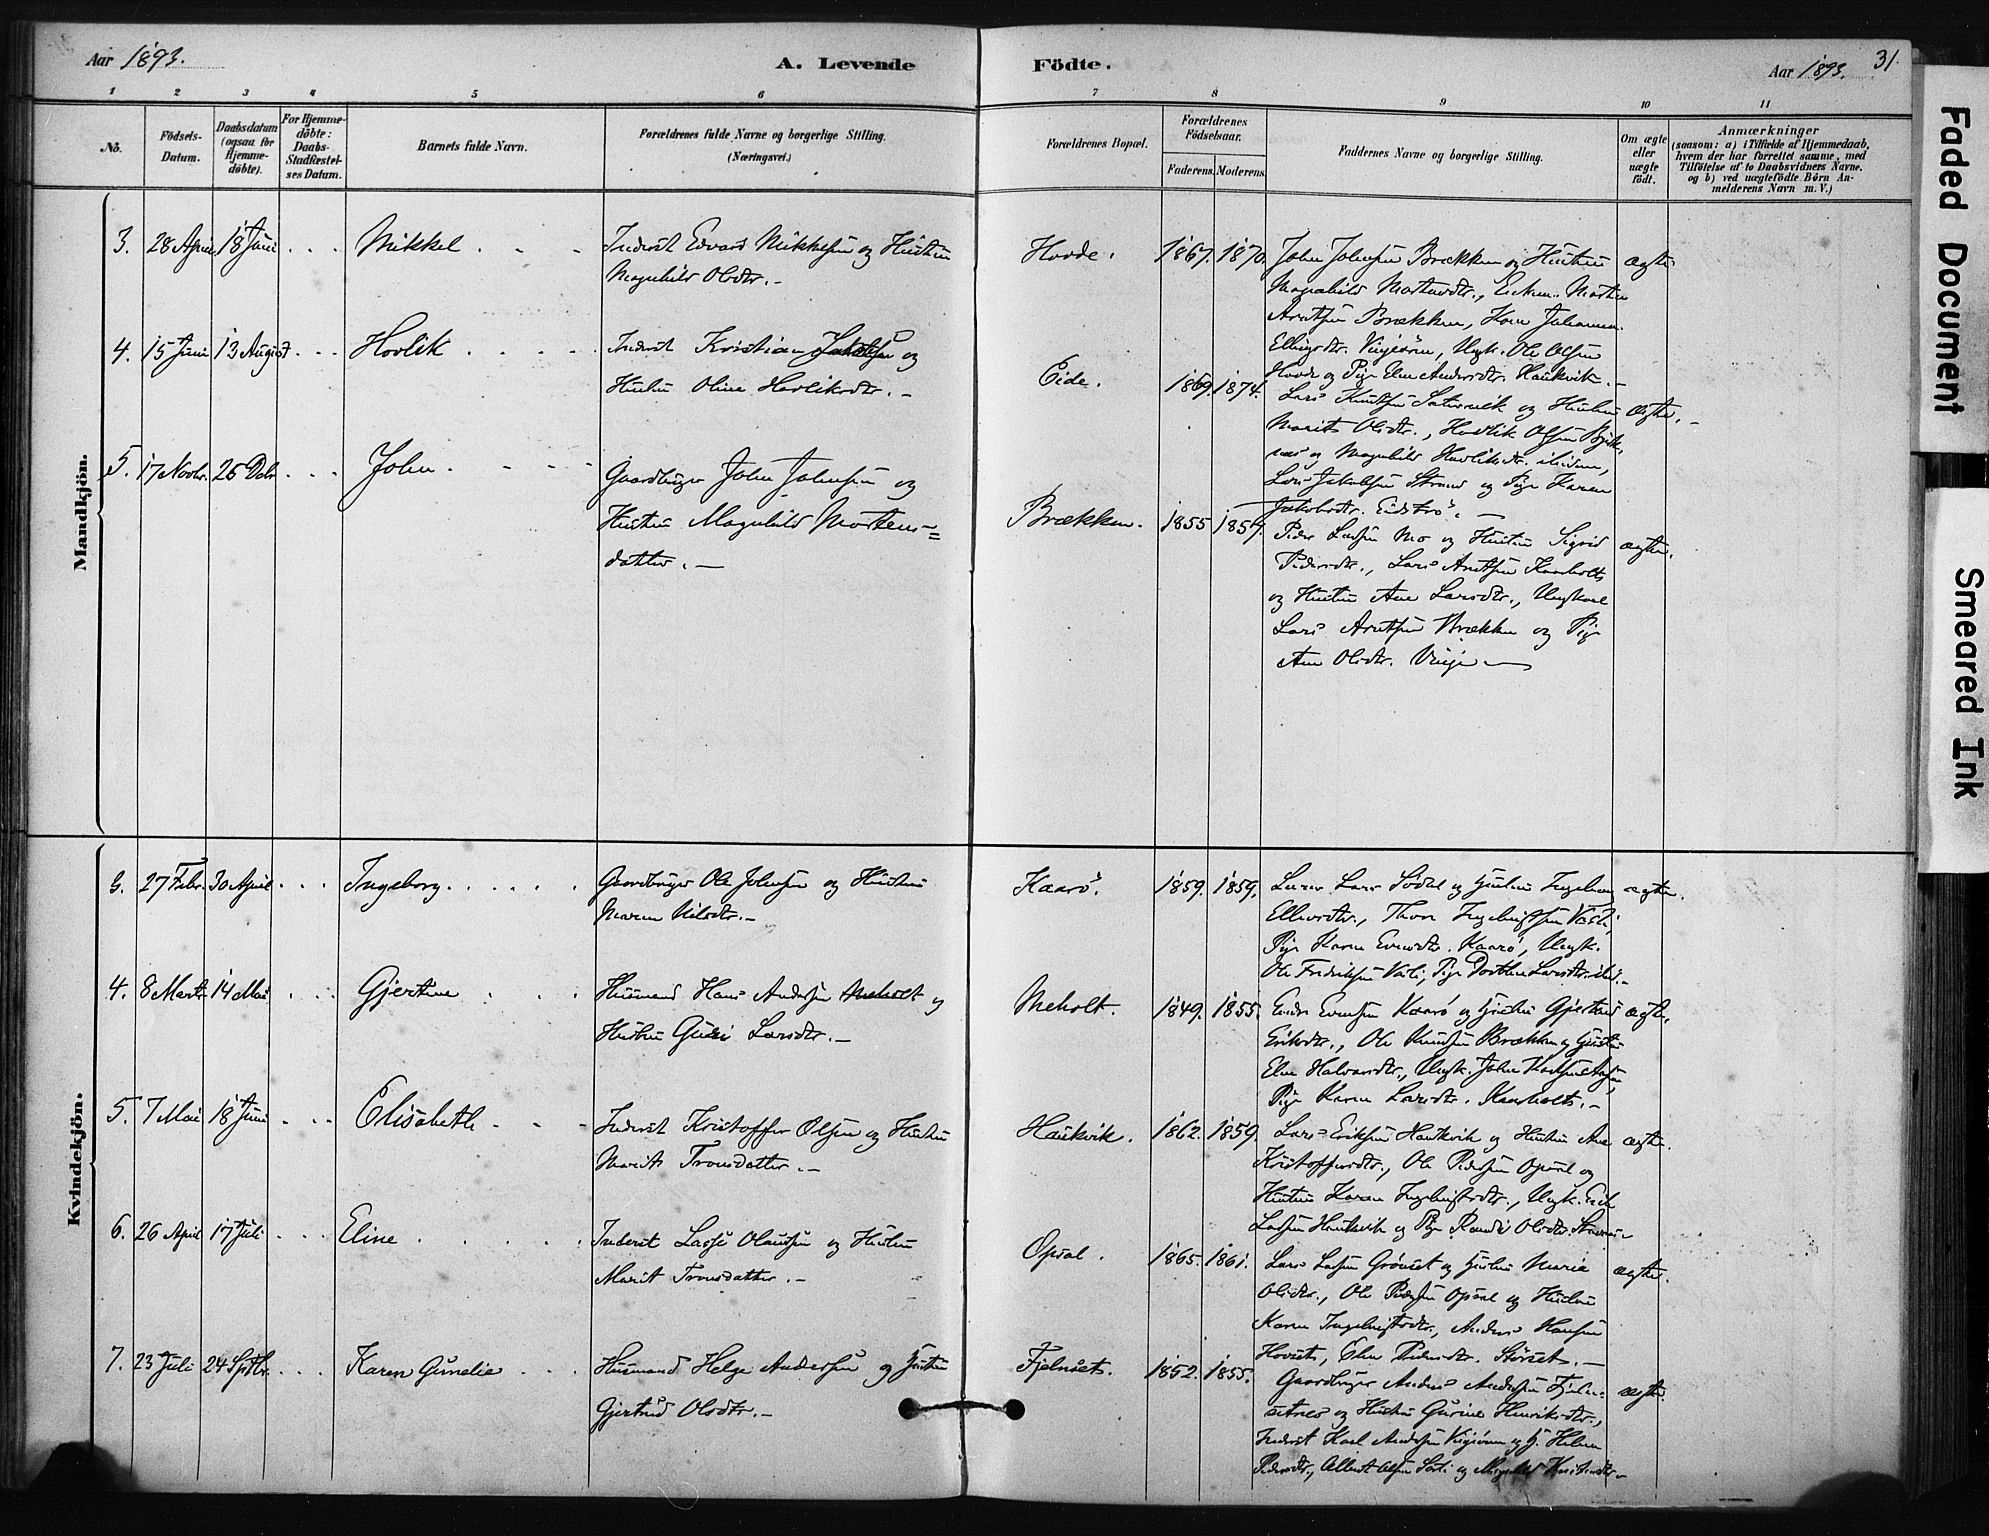 Aar 1893.
A. Levende Födte.
Aar 1893.
31.
1 2 3 4 5 6 7 8 9 10 11
No.
Födsels-
Datum.
Daabsdatum
(ogsaa for
Hjemme-
döbte).
For Hjemme-
döbte:
Daabs-
Stadfæstel-
ses Datum.
Barnets fulde Navn.
Forældrenes fulde Navne og borgerlige Stilling.
(Næringsvei.)
Forældrenes Bopæl.
Forældrenes
Födselsaar.
Faderens. Moderens.
Faddernes Navne og borgerlige Stilling.
Om ægte
eller
uægte
födt.
Anmærkninger
(saasom: a) i Tilfælde af Hjemmedaab,
hvem der har forrettet samme, med
Tilföielse af to Daabsvidners Navne.
og b) ved uægtefödte Börn An-
melderens Navn m. V.)
Mandkjön.
3. 28 April 18 Juni Mikkel
Inderst Edvard Mikkelsen og Hustru
Magnhild Olsdtr.
Hovde. 1867. 1870.
John Johnsen Brækken og Hustru
Magnhild Mortensdtr., Enkem. Morten
Arntsen Brækken, Kone Johanna
Ellingsdtr. Vingeören, Ungk. Ole Olsen
Hovde og Pige Elen Andersdtr. Haukvik.
ægte
4. 15 Juni 13 August Hovlik
Inderst Kristian og
Hustru Oline Hovliksdtr.
Eide. 1869. 1874.
Lars Knutsen og Hustru
Marit Olsdtr., Hovlik Olsen
og Magnhild Hovliksdtr. ibidem,
Lars Jakobsen Strand og Pige Karen
Jakobsdtr. Eidsbrö.
ægte.
5. 17 Novbr. 26 Debr. John
Gaardbruger John Johnsen og
Hustru Magnhild Mortens=
datter.
Brækken. 1855 1857.
Peder Larsen Mo og Hustru Sigrid
Pedersdtr., Lars Arntsen Kaarholt
og Hustru Ane Larsdtr., Ungkarl
Lars Arntsen Brækken og Pige
Ane Olsdtr. Vinje
ægte.
Kvindekjön.
3. 27 Febr. 30 April Ingeborg
Gaardbruger Ole Johnsen og Hustru
Maren Nilsdtr.
Kaarö. 1859. 1859.
Lærer Lars Södal og Hustru Ingeborg
Ellevsdtr., Thore Ingebrigtsen Vasli,
Pige Karen Evensdtr. Kaarö, Ungk.
Ole Fredriksen Vasli, Pige Dorthea Larsdtr. ibid.
ægte.
4. 8 Marts 14 Mai Gjertine
Husmand Hans Andersen Meholt og
Hustru Guri Larsdtr.
Meholt. 1849. 1855.
Endre Evensen Kaarö og Hustru Gjertrud
Eriksdtr., Ole Knutsen Brækken og Hustru
Elen Halvorsdtr., Ungk. John
Pige Karen Larsdtr. Kaarholt.
ægte.
5. 7 Mai 18 Juni Elisabeth
Inderst Kristoffer Olsen og Hustru
Marit Tronsdatter.
Haukvik. 1862. 1859.
Lars Eriksen Haukvik og Hustru Ane
Kristoffersdtr., Ole Pedersen Opsal og
Hustru Karen Ingebrigtsdtr., Ungk. Erik
Larsen Haukvik og Pige Randi Olsdtr.
ægte.
6. 26 April 17 Juli Eline
Inderst Lasse Olaussen og Hustru
Marit Tronsdatter.
Opsal. 1865. 1861.
Lars Larsen Grönset og Hustru Maria
Olsdtr., Ole Pedersen Opsal og Hustru
Karen Ingebrigtsdtr., Anders Hansen
Hovset, Elen Pedersdtr. Störset.
ægte.
7. 23 Juli 24 Septbr. Karen Gunelie
Husmand Helge Andersen og Hustru
Gjertrud Olsdtr.
Fjelnset. 1852. 1855.
Gaardbruger Anders Andersen Fjeln-
setnes og Hustru Gurine Henriksdtr.,
Inderst Karl Andersen Vingeören og H. Helena
Pedersdtr., Albert Olsen og Magnhild Kristensdtr.
ægte.
Faded Document
Smeared Ink